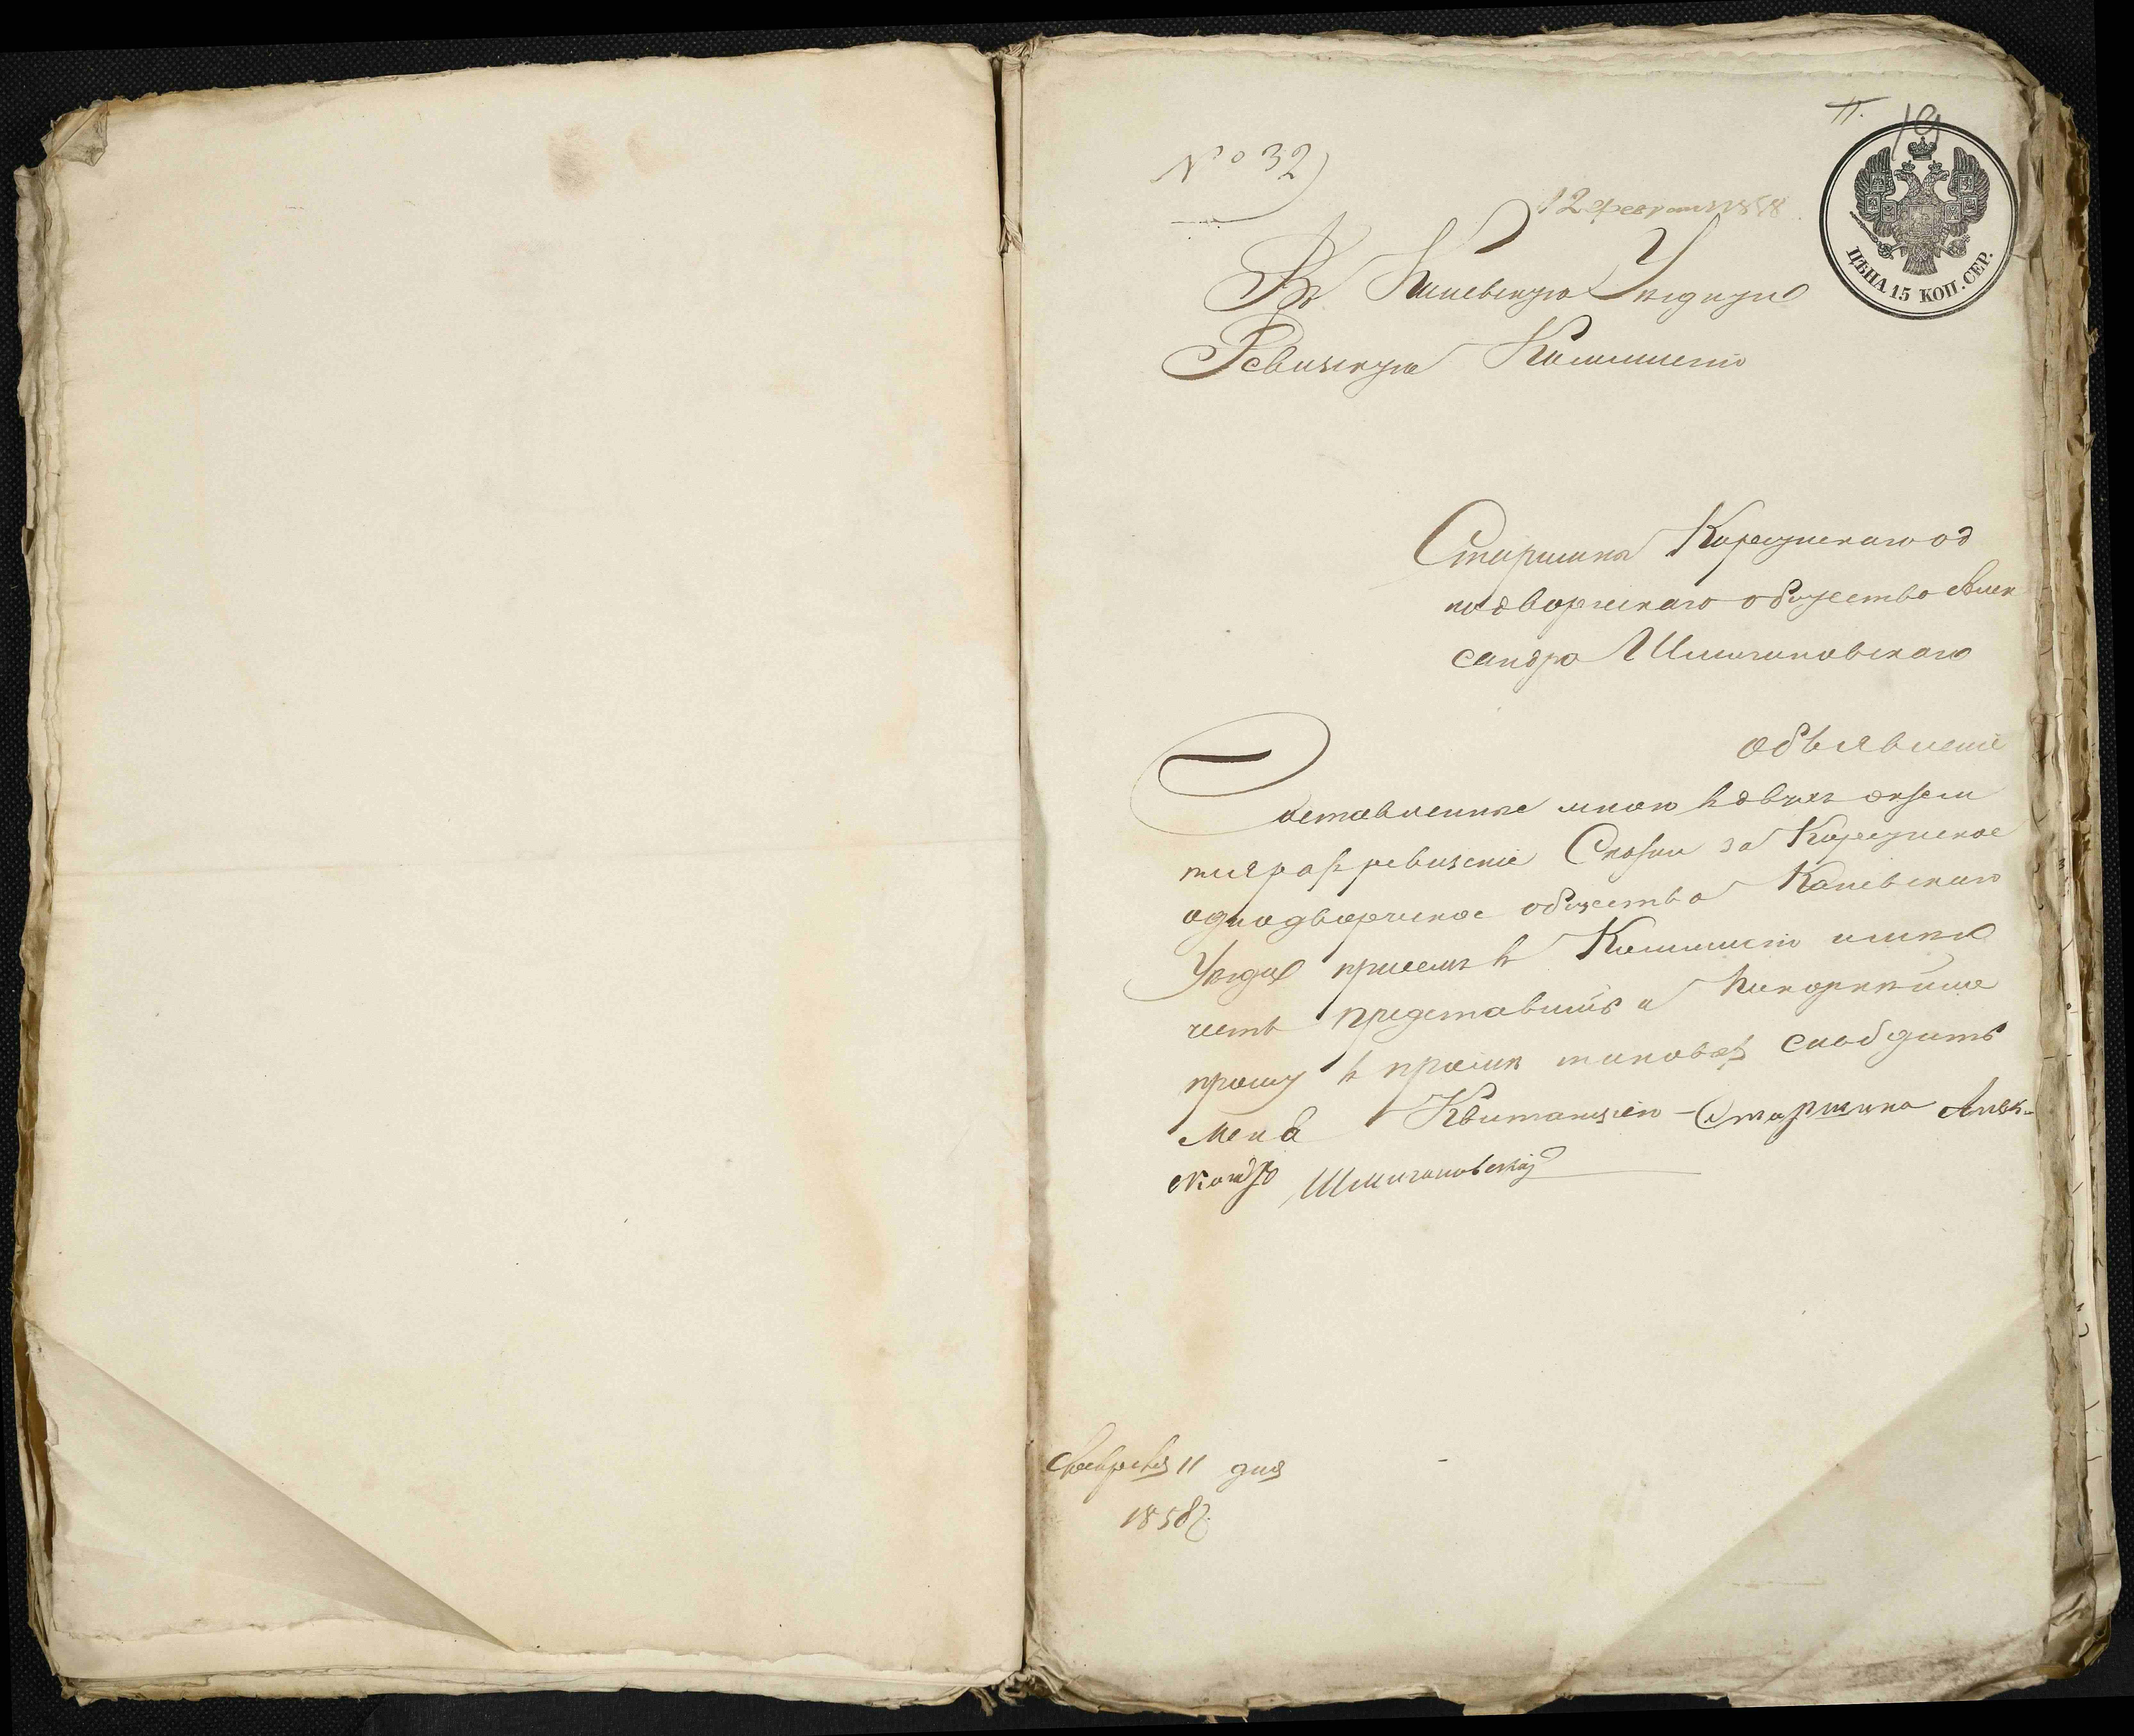 П. 19
№ 32
12 февраля 1858
ЦѢНА 15 КОП. СЕР.
Въ Каневскую Уездную
Ревизскую Коммисію
Старшины Корсунскаго од
нодворческаго общества Алек
сандра Шмигановскаго
объявленіе
Составленные мною въ двухъ экзем
плярахъ ревизскіе Сказки за Корсунское
однодворческое общество Каневскаго
Уезда при семъ въ Коммисію имею
честь представить и покорнейше
прошу въ приеме таковых снабдить
меня Квитанціею - Старшина Алек-
сандръ Шмигановскій
Февраля 11 дня
1858 г.